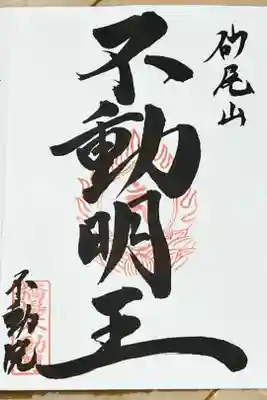 砂尾山
不動明王
不動院